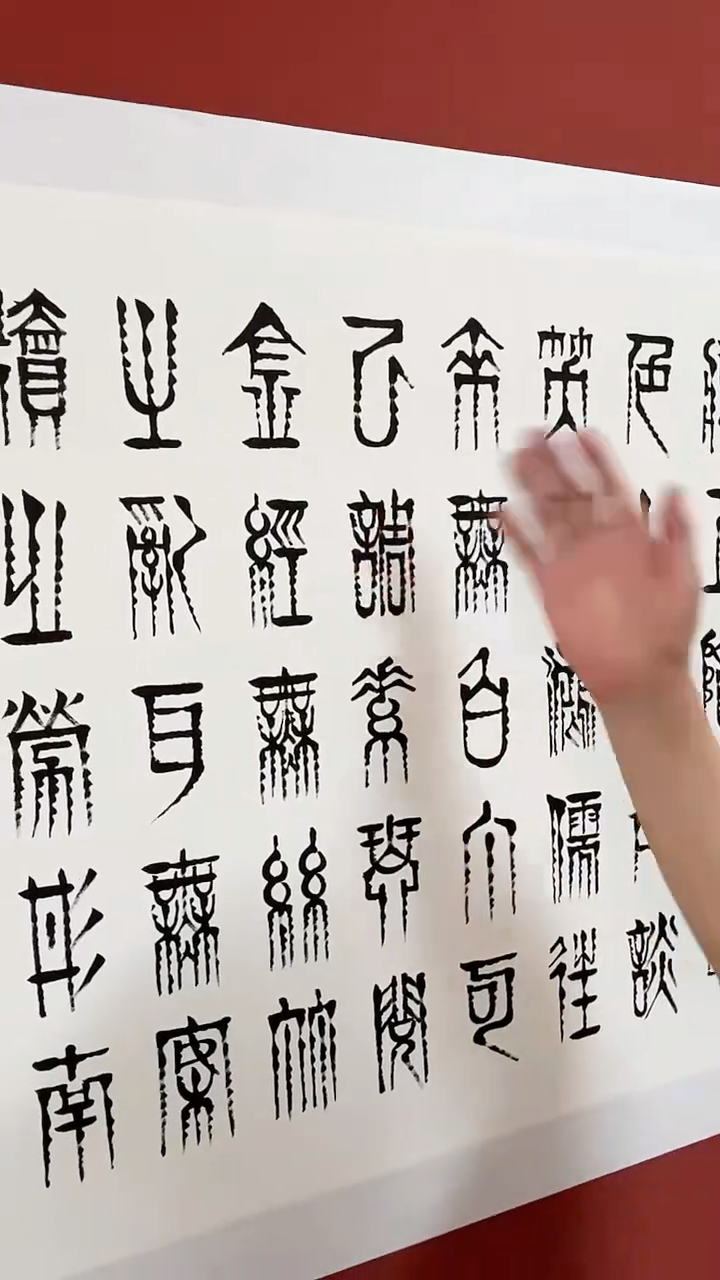 色談
笑鴻儒往
來無白丁可
以調素琴閱
金經無絲竹
之亂耳無案
牘之勞形南